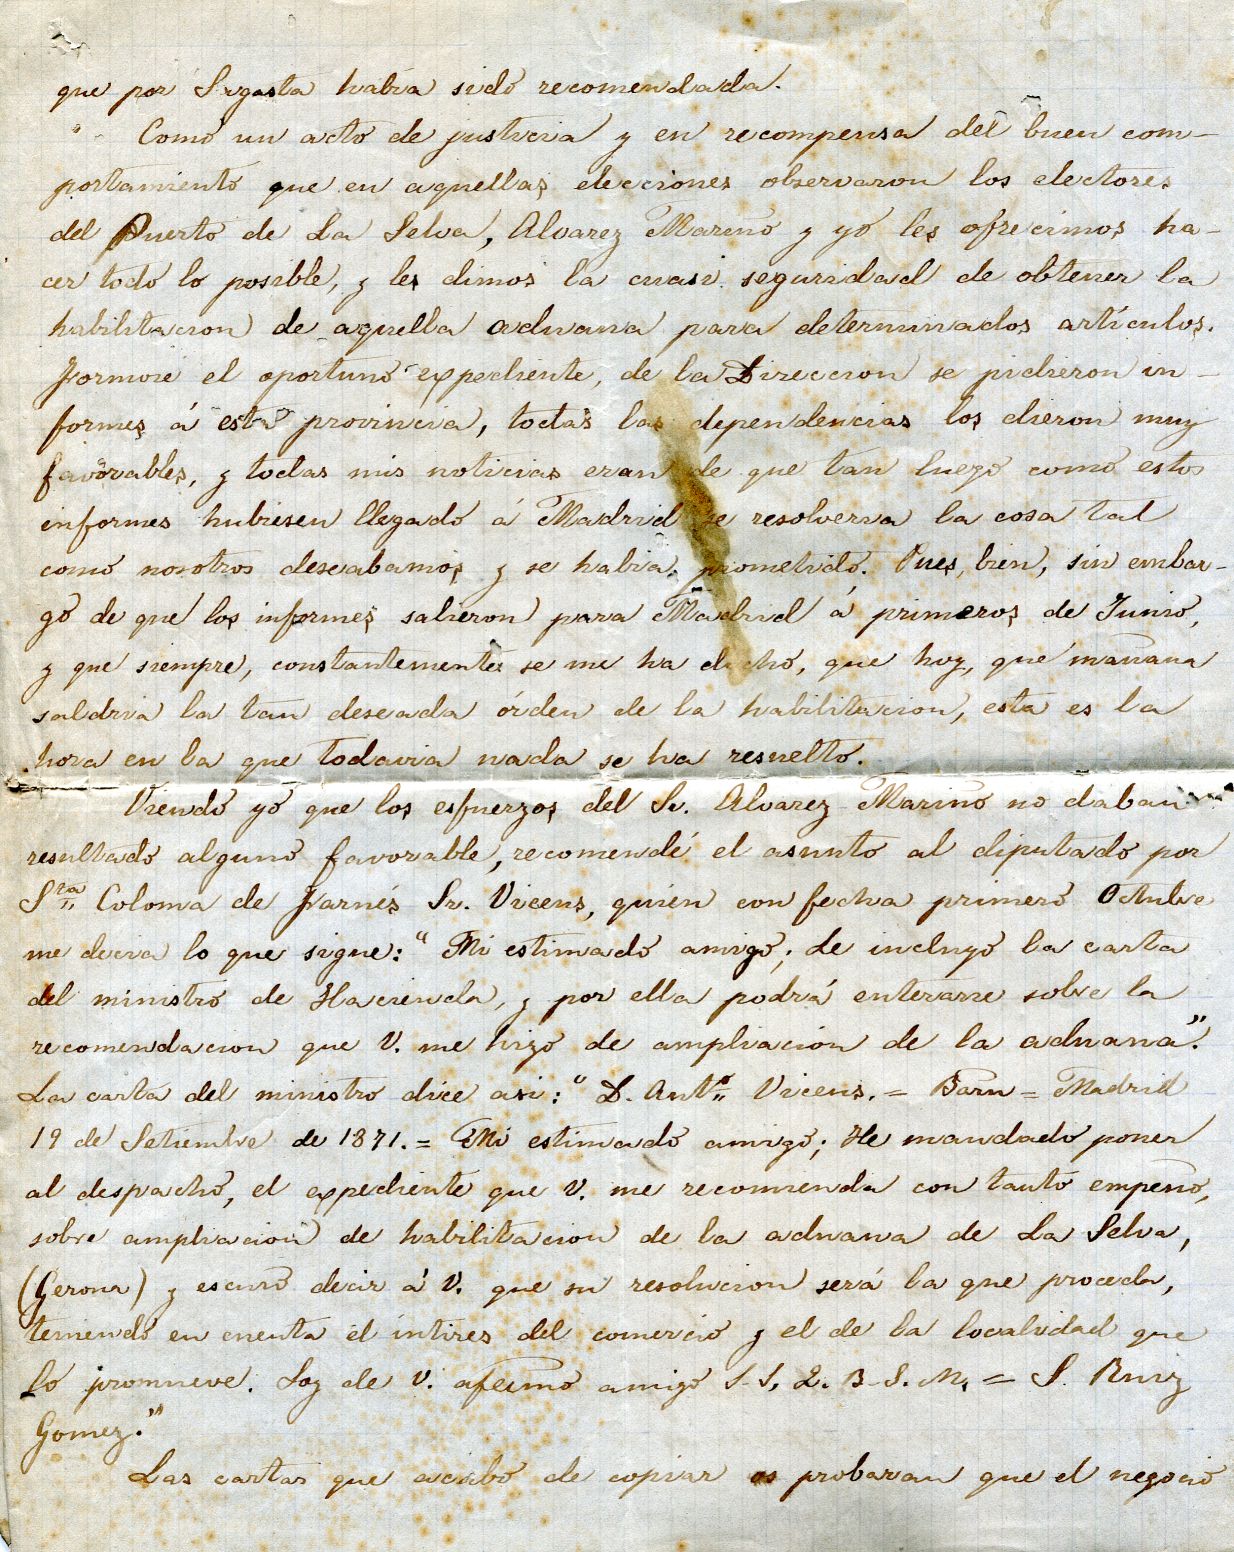 que por Sagasta habia sido recomendada.
Como un acto de justicia y en recompensa del buen com-
portamiento que en aquellas elecciones observaron los electores
del Puerto de La Selva, Alvarez Mariño y yo les ofrecimos ha-
cer todo lo posible, y les dimos la cuasi seguridad de obtener la
habilitacion de aquella aduana para determinados artículos.
Formóse el oportuno expediente, de la Direccion se pidieron in-
formes á esta provincia, todas las dependencias los dieron muy
favorables, y todas mis noticias eran de que tan luego como estos
informes hubiesen llegado á Madrid se resolveria la cosa tal
como nosotros deseabamos y se habia prometido. Pues, bien, sin embar-
go de que los informes salieron para Madrid á primeros de Junio,
y que siempre, constantemente se me ha dicho, que hoy, que mañana
saldria la tan deseada órden de la habilitacion, esta es la
hora en la que todavia nada se ha resuelto.
Viendo yo que los esfuerzos del Sr. Alvarez Mariño no daban
resultado alguno favorable, recomendé el asunto al diputado por
Sta Coloma de Farnés Sr. Vicens, quien con fecha primero Octubre
me decia lo que sigue: "Mi estimado amigo; Le incluyo la carta
del ministro de Hacienda, y por ella podrá enterarse sobre la
recomendacion que V. me hizo de ampliación de la aduana".
La carta del ministro dice asi: "D. Anto Vicens. = Barn = Madrid
19 de Setiembre de 1871. = Mi estimado amigo; He mandado poner
al despacho, el expediente que V. me recomienda con tanto empeño,
sobre ampliacion de habilitacion de la aduana de La Selva,
(Gerona) y escuso decir á V. que su resolucion será la que proceda,
teniendo en cuenta el intires del comercio y el de la localidad que
lo promueve. Soy de V. afecimo amigo S.S. Q. B. S. M. = S. Ruiz
Gomez."
Las cartas que acabo de copiar os probaran que el negocio